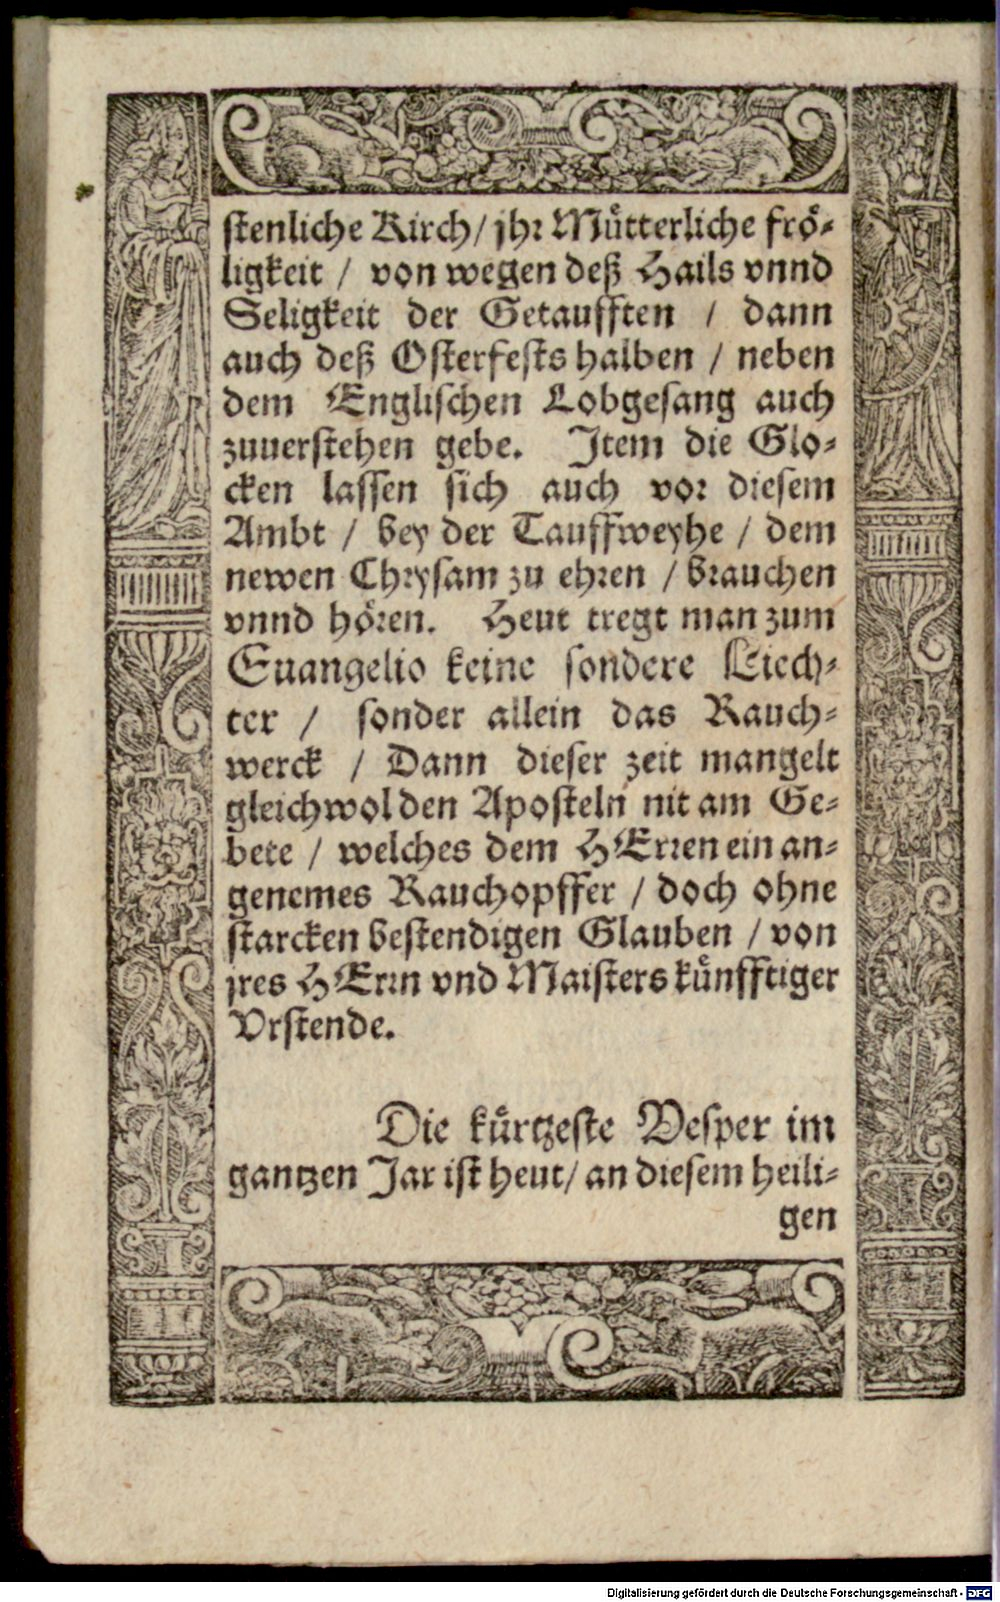 stenliche Kirch/ jhr Mütterliche frö-
ligkeit / von wegen deß Hails vnnd
Seligkeit der Getaufften / dann
auch deß Osterfests halben / neben
dem Englischen Lobgesang auch
zuuerstehen gebe. Item die Glo-
cken lassen sich auch vor diesem
Ambt / bey der Tauffweyhe / dem
newen Chrysam zu ehren / brauchen
vnnd hören. Heut tregt man zum
Euangelio keine sondere Liech-
ter / sonder allein das Rauch-
werck / Dann dieser zeit mangelt
gleichwol den Aposteln nit am Ge-
bete / welches dem HErren ein an-
genemes Rauchopffer / doch ohne
starcken bestendigen Glauben / von
jres HErrn vnd Maisters künfftiger
Vrstende.
Die kürtzeste Vesper im
gantzen Jar ist heut/ an diesem heili-
gen
Digitalisierung gefördert durch die Deutsche Forschungsgemeinschaft - DFG